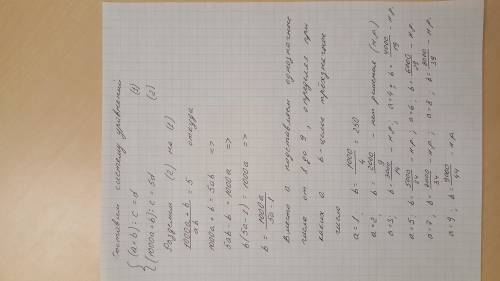 Составим систему уравнений
{ (a*b) : c = d (1)
{ (1000a+b) : c = 5d (2)
Разделим (2) на (1)
1000a + b / ab = 5 откуда
1000a + b = 5ab =>
5ab - b = 1000a =>
b(5a-1) = 1000a =>
b = 1000a / 5a-1
Вместо a подставляем однозначные
числа от 1 до 9, определяя при
каких a b - целое трёхзначное
число
a=1, b = 1000/4 = 250
a=2, b = 2000/9 - нет решения (н.р.)
a=3, b = 3000/14 - н.р.; a=4; b = 4000/19 - н.р.
a=5, b = 5000/24 - н.р.; a=6, b = 6000/29 - н.р.
a=7, b = 7000/34 - н.р.; a=8, b = 8000/39 - н.р.
a=9, b = 9000/44 - н.р.